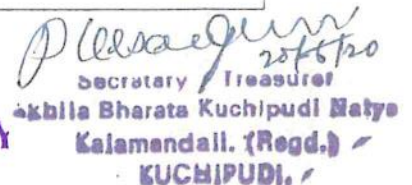 20/6/20
Secretary / Treasurer
Akhila Bharata Kuchipudi Natya
Kalamandali. (Regd.)
KUCHIPUDI.